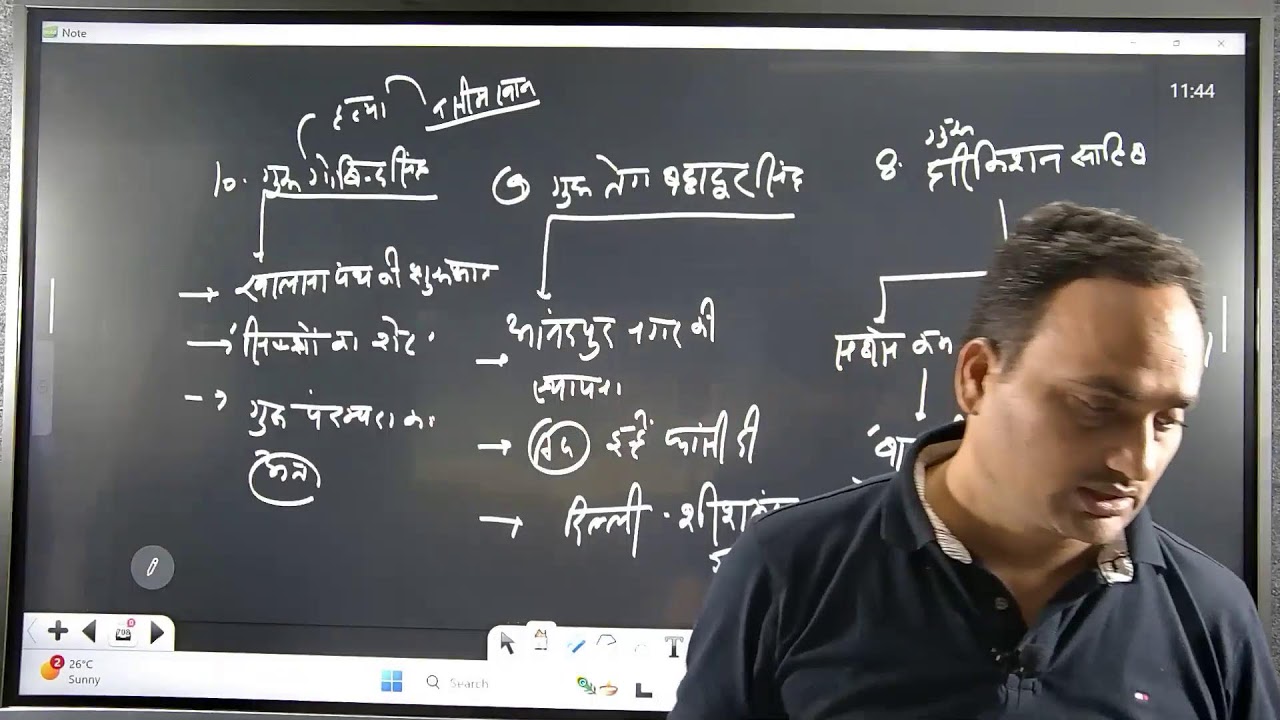 Note
11:44
हत्या वसीम खान
10. गुरू गोबिन्द सिंह
→ खालसा पंथ की शुरूआत
→ सिक्खों का शेर
→ गुरू परम्परा का
अन्त
9 गुरू तेग बहादूर सिंह
→ आनंदपुर नगर की
स्थापना
→ इन्हें फांसी दी
→ दिल्ली - शीश
8. गुरू
हरकिशन साहिब
सबसे कम
26°C
Sunny
Search
T